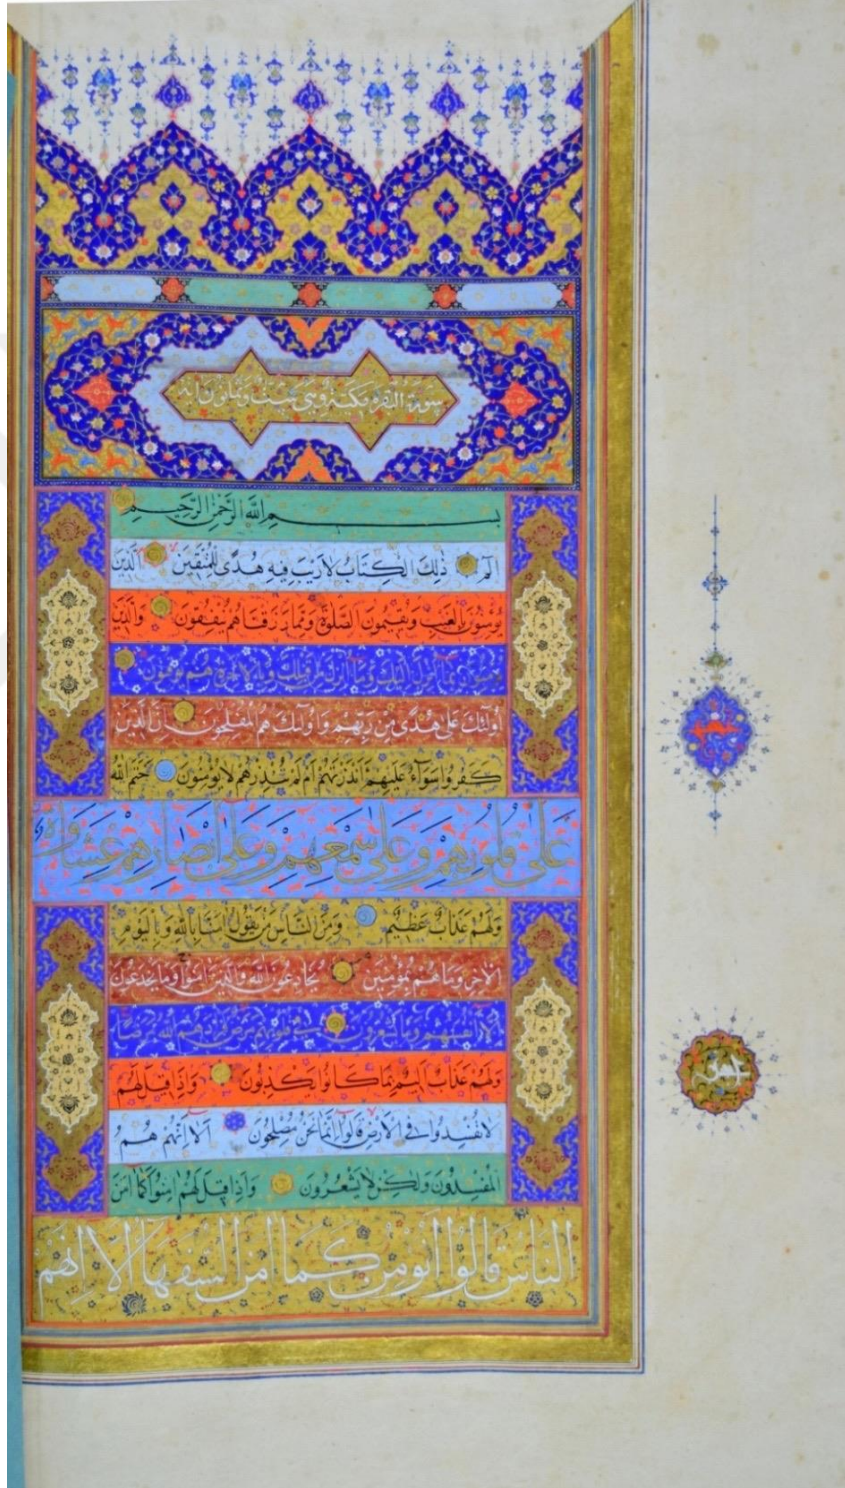 سورة البقره مكية وهي وثمانون ايه
بسم الله الرَّحمنِ الرَّحِيمِ
الم ذٰلِكَ الكِتَابُ لَا رَيْبَ فِيهِ هُدًى لِلْمُتَّقِينَ الَّذِينَ
يُؤْمِنُونَ بِالْغَيْبِ وَيُقِيمُونَ الصَّلٰوةَ وَمِمَّا رَزَقْنَاهُمْ يُنْفِقُونَ وَالَّذِينَ
يُؤْمِنُونَ بِمَا أُنْزِلَ إِلَيْكَ وَمَا أُنْزِلَ مِنْ قَبْلِكَ وَبِالْآخِرَةِ هُمْ يُوقِنُونَ
أُولٰئِكَ عَلٰى هُدًى مِنْ رَبِّهِمْ وَأُولٰئِكَ هُمُ الْمُفْلِحُونَ إِنَّ الَّذِينَ
كَفَرُوا سَوَاءٌ عَلَيْهِمْ ءَأَنْذَرْتَهُمْ أَمْ لَمْ تُنْذِرْهُمْ لَا يُؤْمِنُونَ خَتَمَ اللهُ
عَلٰى قُلُوبِهِمْ وَعَلٰى سَمْعِهِمْ وَعَلٰى أَبْصَارِهِمْ غِشَاوَةٌ
وَلَهُمْ عَذَابٌ عَظِيمٌ وَمِنَ النَّاسِ مَنْ يَقُولُ آمَنَّا بِاللهِ وَبِالْيَوْمِ
الْآخِرِ وَمَا هُمْ بِمُؤْمِنِينَ يُخَادِعُونَ اللهَ وَالَّذِينَ آمَنُوا وَمَا يَخْدَعُونَ
إِلَّا أَنْفُسَهُمْ وَمَا يَشْعُرُونَ فِي قُلُوبِهِمْ مَرَضٌ فَزَادَهُمُ اللهُ مَرَضًا
وَلَهُمْ عَذَابٌ أَلِيمٌ بِمَا كَانُوا يَكْذِبُونَ وَإِذَا قِيلَ لَهُمْ
لَا تُفْسِدُوا فِي الْأَرْضِ قَالُوا إِنَّمَا نَحْنُ مُصْلِحُونَ أَلَا إِنَّهُمْ هُمُ
الْمُفْسِدُونَ وَلٰكِنْ لَا يَشْعُرُونَ وَإِذَا قِيلَ لَهُمْ آمِنُوا كَمَا آمَنَ
النَّاسُ قَالُوا أَنُؤْمِنُ كَمَا آمَنَ السُّفَهَاءُ أَلَا إِنَّهُمْ